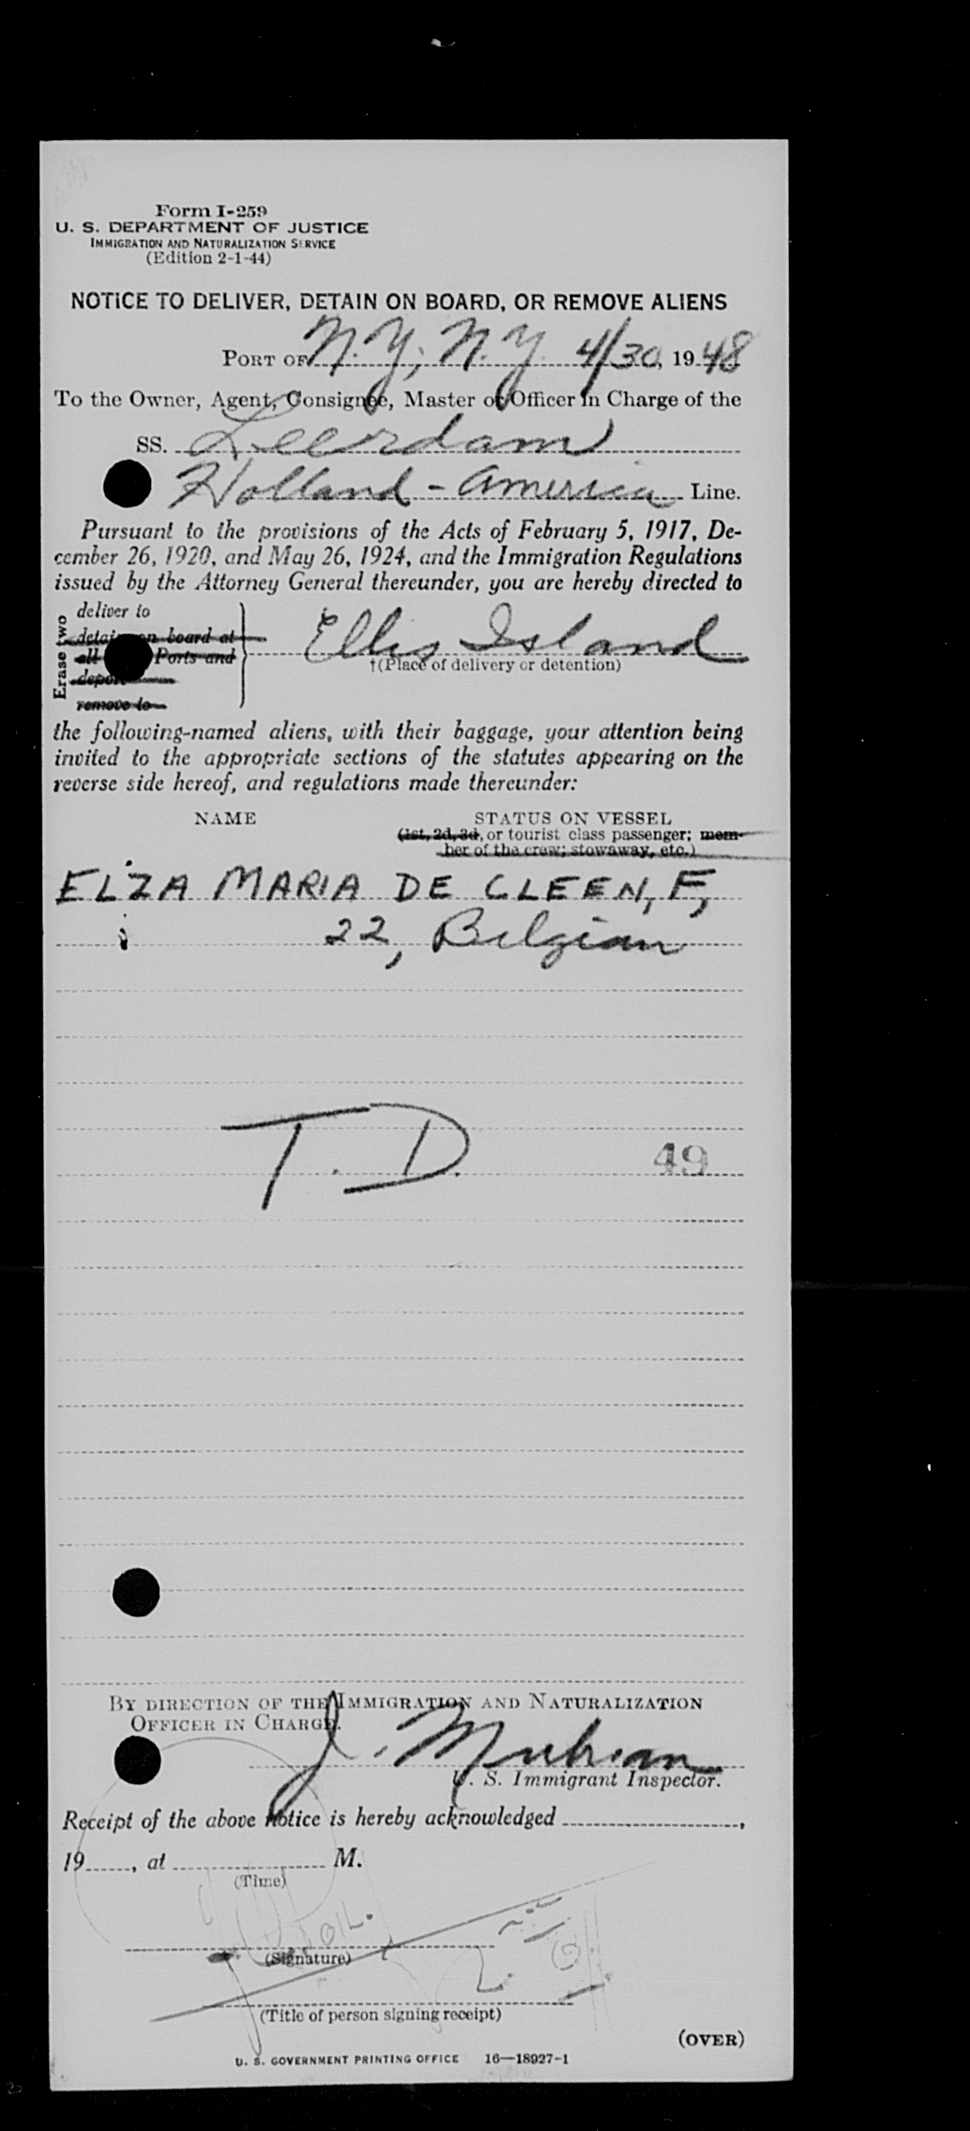 Form I-259
U. S. DEPARTMENT OF JUSTICE
IMMIGRATION AND NATURALIZATION SERVICE
(Edition 2-1-44)
NOTICE TO DELIVER, DETAIN ON BOARD, OR REMOVE ALIENS
PORT OF N.Y., N.Y. 4/30, 1948
To the Owner, Agent, Consignee, Master or Officer in Charge of the
SS. Leerdam
Holland-America Line.
Pursuant to the provisions of the Acts of February 5, 1917, De-
cember 26, 1920, and May 26, 1924, and the Immigration Regulations
issued by the Attorney General thereunder, you are hereby directed to
Erase two
deliver to
detain on board at
all Ports and
deport
remove to
Ellis Island
†(Place of delivery or detention)
the following-named aliens, with their baggage, your attention being
invited to the appropriate sections of the statutes appearing on the
reverse side hereof, and regulations made thereunder:
NAME STATUS ON VESSEL
(1st, 2d, 3d, or tourist class passenger; mem-
ber of the crew; stowaway, etc.)
ELZA MARIA DE CLEEN, F,
22, Belgian
T. D.
49
BY DIRECTION OF THE IMMIGRATION AND NATURALIZATION
OFFICER IN CHARGE.
J.
U. S. Immigrant Inspector.
Receipt of the above notice is hereby acknowledged ,
19 , at M.
(Time)
(Signature)
(Title of person signing receipt)
(OVER)
U. S. GOVERNMENT PRINTING OFFICE 16—18927-1